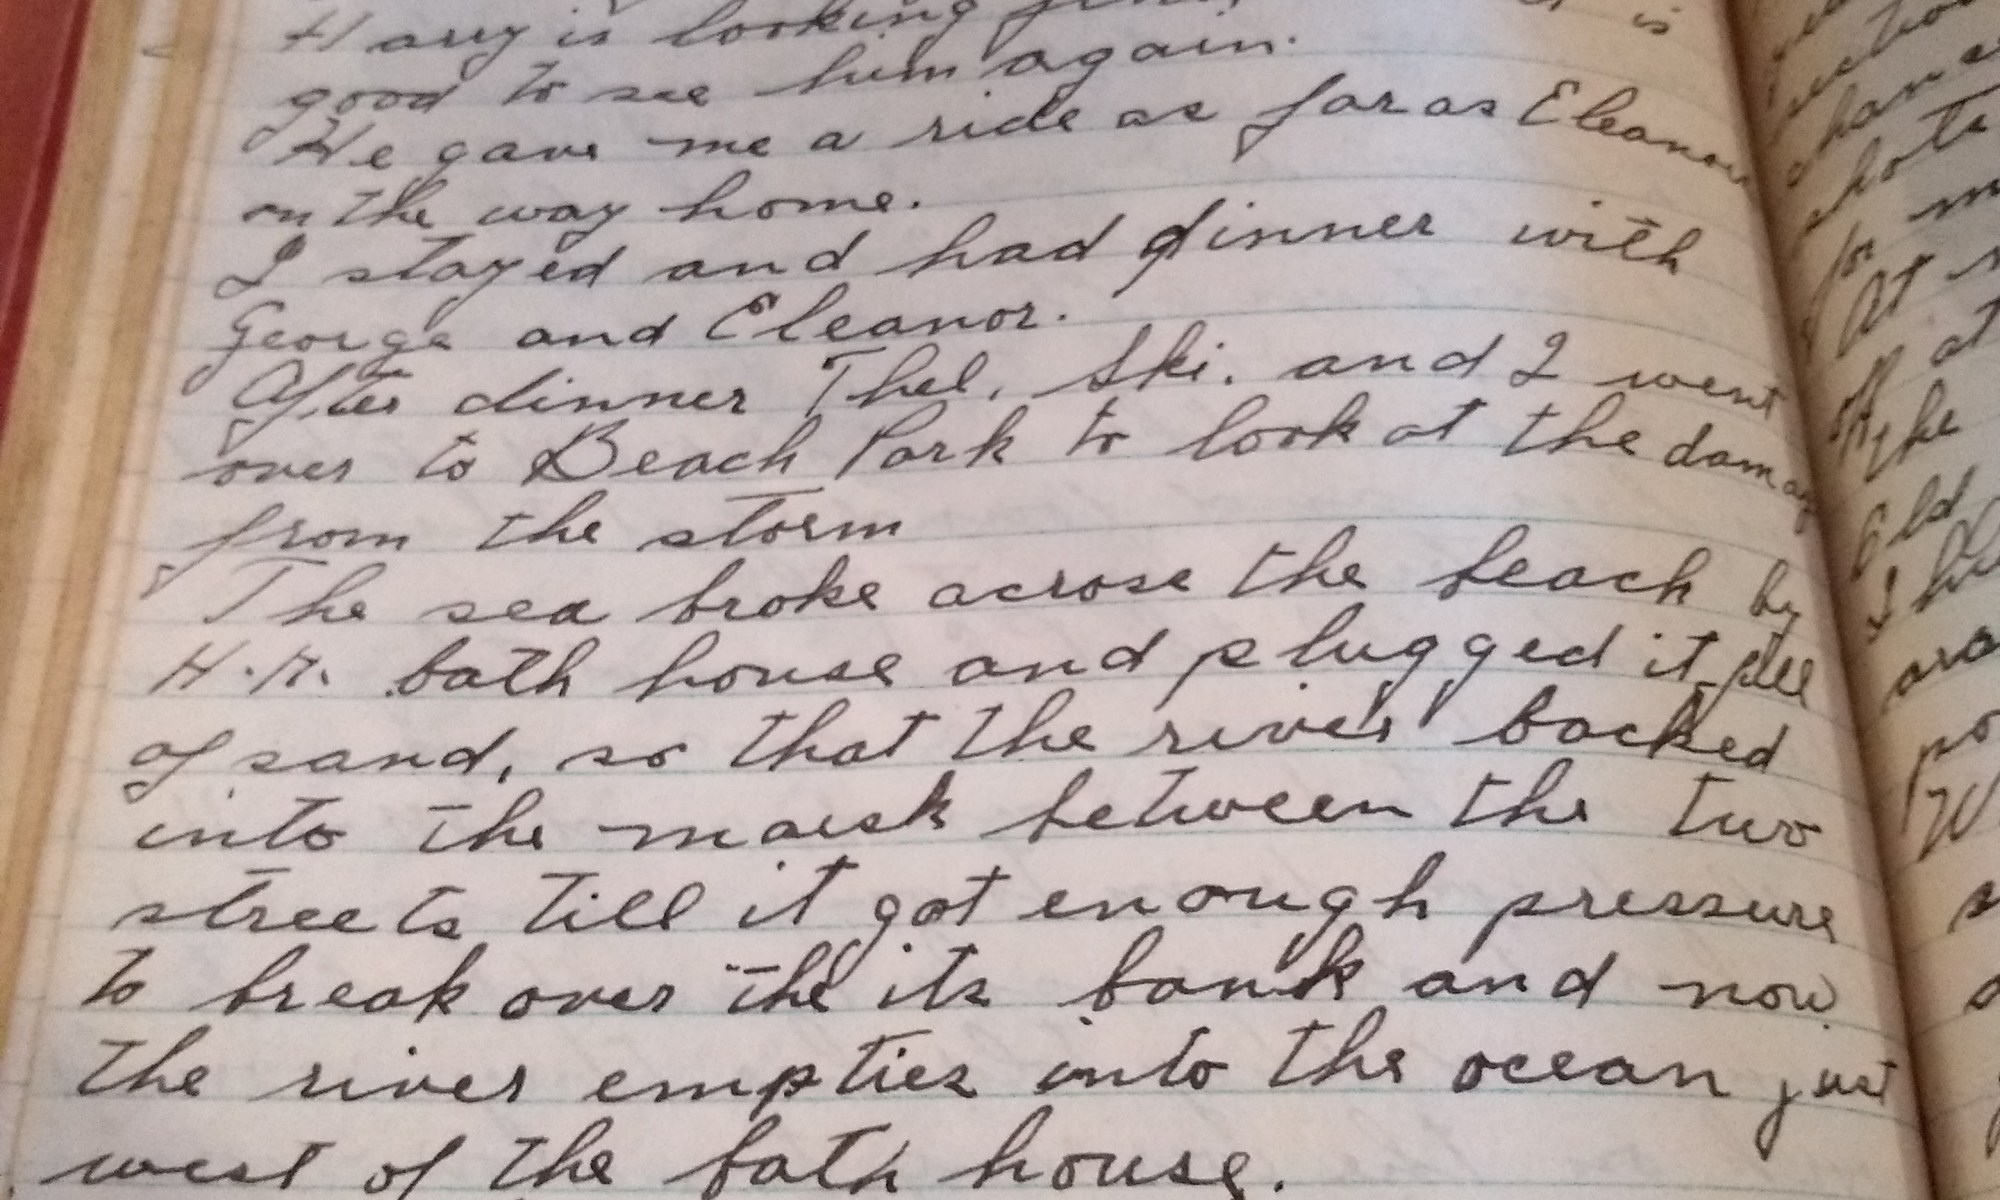 Harry is looking is
good to see him again.
He gave me a ride as far as Eleanor
on the way home.
I stayed and had dinner with
George and Eleanor.
After dinner Thel. Ski. and I went
over to Beach Park to look at the damag
from the storm
The sea broke across the beach by
H.A. bath house and plugged it full
of sand, so that the river backed
into the marsh between the two
streets till it got enough pressure
to break over the its bank and now
the river empties into the ocean just
west of the bath house.
for m
at
off at
the